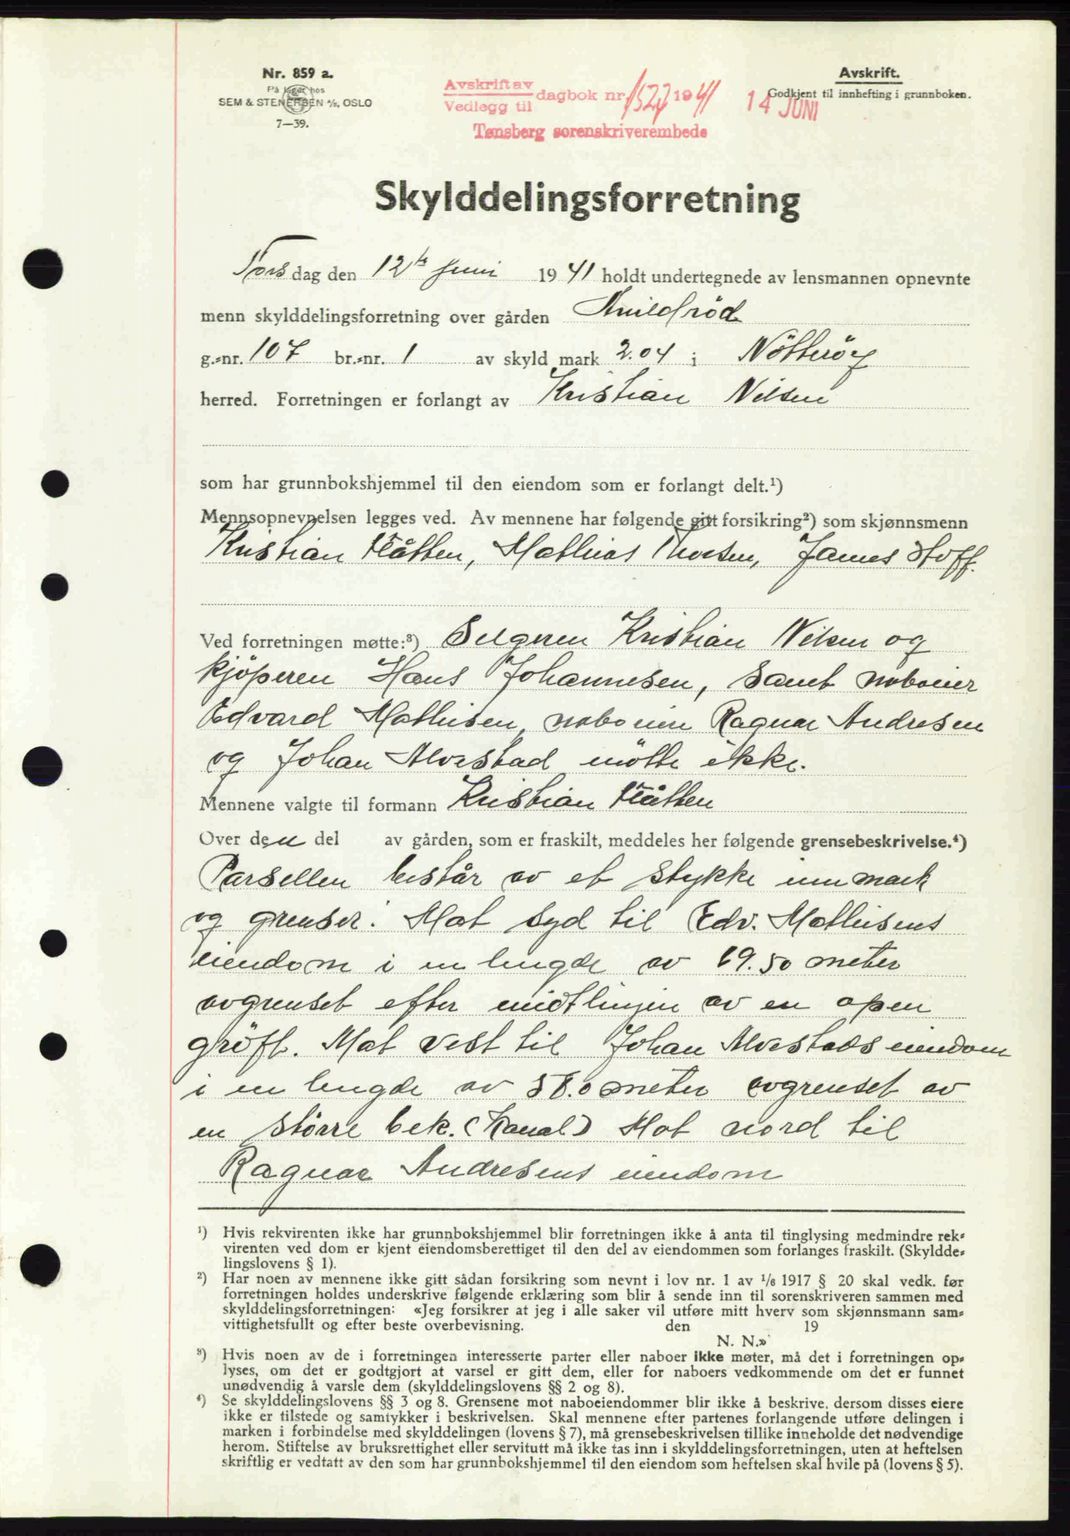 Nr. 859 a.
På lager hos
SEM & STENERSEN A/S, OSLO
7—39.
Avskrift av
Vedlegg til
dagbok nr 1522 1941
Tønsberg sorenskriverembede
Avskrift.
Godkjent til innhefting i grunnboken.
14 JUNI
Skylddelingsforretning
Torsdag den 12te juni 1941 holdt undertegnede av lensmannen opnevnte
menn skylddelingsforretning over gården
g.-nr. 107 br.-nr. 1 av skyld mark 2.04 i Nötteröy
herred. Forretningen er forlangt av Kristian Nilsen
som har grunnbokshjemmel til den eiendom som er forlangt delt.¹)
Mennsopnevnelsen legges ved. Av mennene har følgende gitt forsikring²) som skjønnsmenn
Kristian Flåtten, Mathias Thorsen, James Hoff.
Ved forretningen møtte:³) Selgeren Kristian Nilsen og
kjöperen Hans Johannesen, samt naboeier
Edvard Mathisen, naboeier Ragnar Andresen
og Johan Alvestad mötte ikke.
Mennene valgte til formann Kristian Flåtten
Over den del av gården, som er fraskilt, meddeles her følgende grensebeskrivelse.⁴)
Parsellen består av et stykke innmark
og grenser: Mot syd til Edv. Mathisens
eiendom i en lengde av 69.50 meter
avgrenset efter midtlinjen av en open
gröft. Mot vest til Johan Alvestads eiendom
i en lengde av 58.0 meter avgrenset av
en större bek. (Kanal) Mot nord til
Ragnar Andresens eiendom
¹) Hvis rekvirenten ikke har grunnbokshjemmel blir forretningen ikke å anta til tinglysing medmindre rek-
virenten ved dom er kjent eiendomsberettiget til den del av eiendommen som forlanges fraskilt. (Skyldde-
lingslovens § 1).
²) Har noen av mennene ikke gitt sådan forsikring som nevnt i lov nr. 1 av 1/6 1917 § 20 skal vedk. før
forretningen holdes underskrive følgende erklæring som blir å sende inn til sorenskriveren sammen med
skylddelingsforretningen: «Jeg forsikrer at jeg i alle saker vil utføre mitt hverv som skjønnsmann sam-
vittighetsfullt og efter beste overbevisning. den 19
N. N.»
³) Hvis noen av de i forretningen interesserte parter eller naboer ikke møter, må det i forretningen op-
lyses, om det er godtgjort at varsel er gitt dem, eller for naboers vedkommende om det er funnet
unødvendig å varsle dem (skylddelingslovens §§ 2 og 8).
⁴) Se skylddelingslovens §§ 3 og 8. Grensene mot naboeiendommer blir ikke å beskrive, dersom disses eiere
ikke er tilstede og samtykker i beskrivelsen. Skal mennene efter partenes forlangende utføre delingen i
marken i forbindelse med skylddelingen (lovens § 7), må grensebeskrivelsen tillike inneholde det nødvendige
herom. Stiftelse av bruksrettighet eller servitutt må ikke tas inn i skylddelingsforretningen, uten at heftelsen
skriftlig er vedtatt av den som har grunnbokshjemmel til den eiendom som heftelsen skal hvile på (lovens § 5).